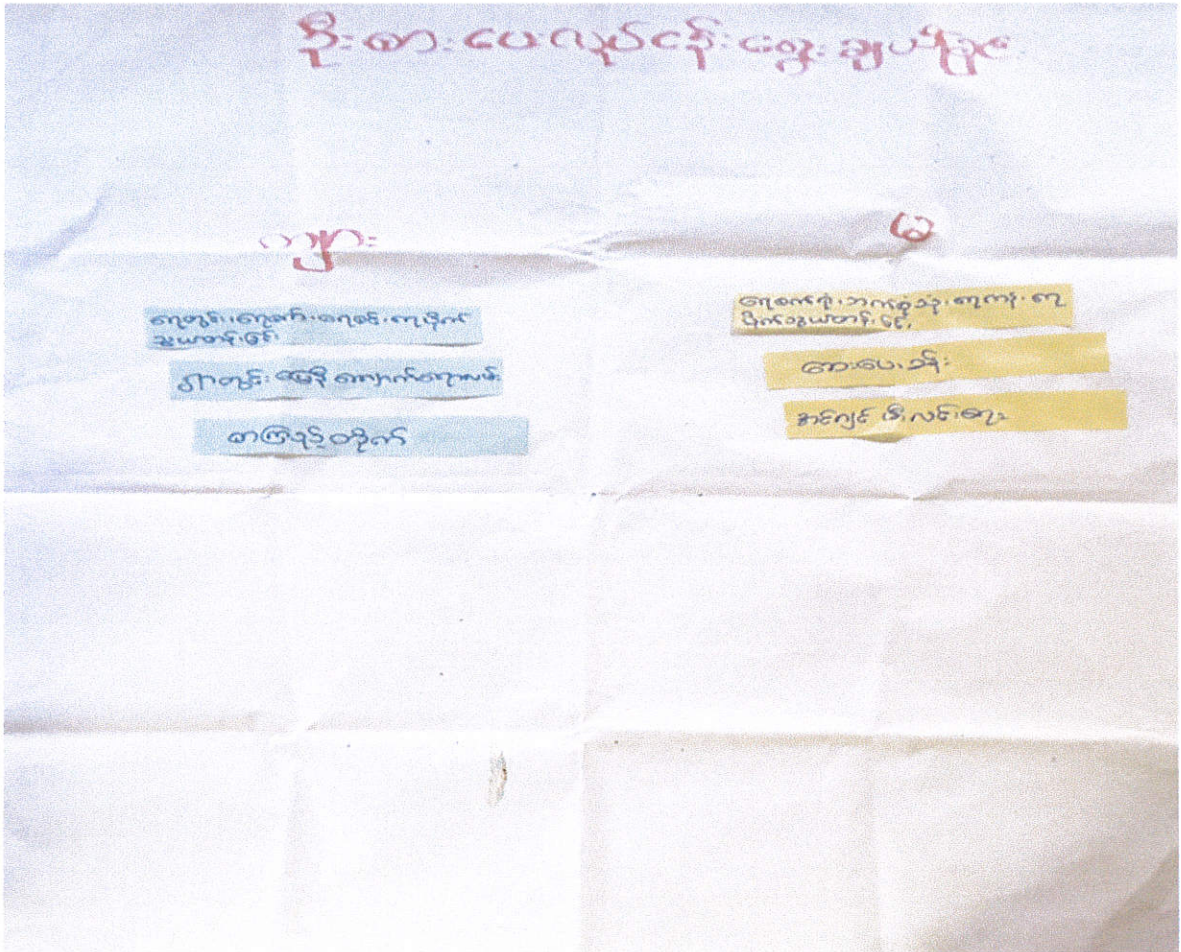 ဦးစားပေးလုပ်ငန်းရွေးချယ်ခြင်း
ကျား
မ
ရေတွင်း၊ ရေစင်၊ ရေပိုက်
သွယ်တန်းခြင်း
ရွာတွင်း မြေနီ ကျောက်ချောလမ်း
စာကြည့်တိုက်
ရေစက်ရုံ၊ ရေကန်၊ ရေ
ပိုက်သွယ်တန်းခြင်း
ဆေးပေးခန်း
အင်ဂျင် မီးလင်းရေး